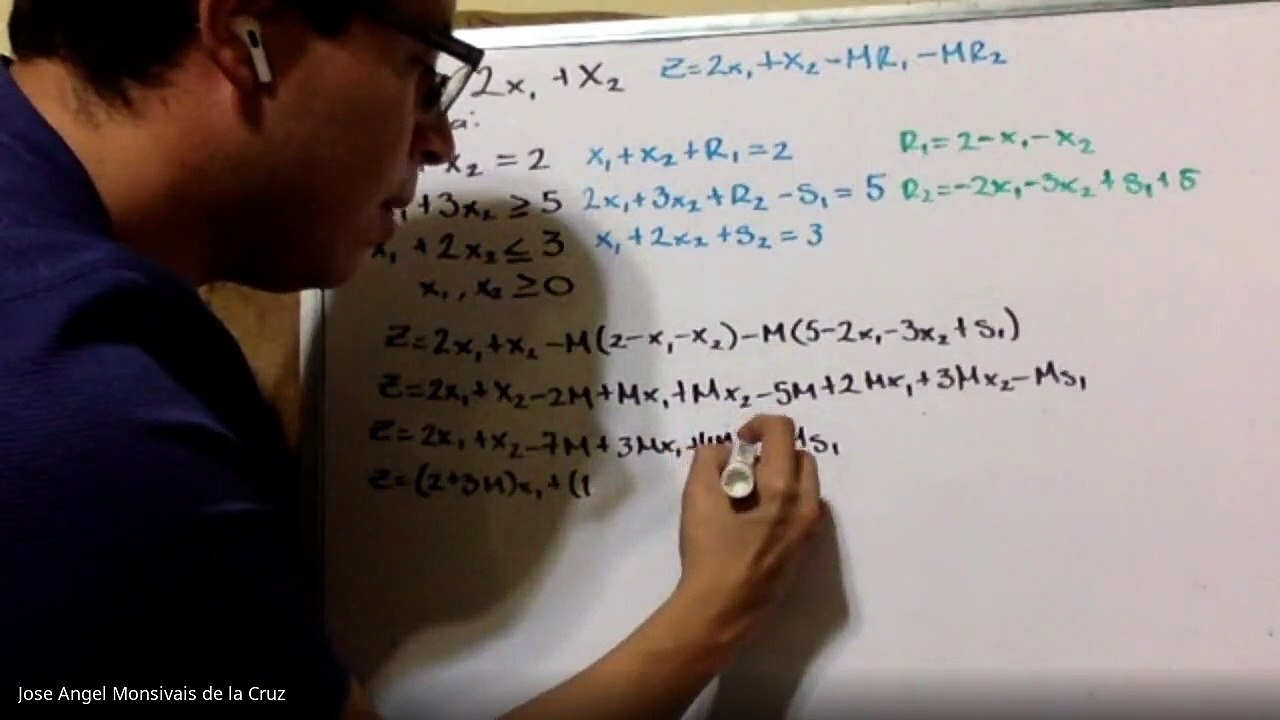 2x₁ + x₂
Z = 2x₁ + x₂ - MR₁ - MR₂
a:
x₂ = 2
x₁ + x₂ + R₁ = 2
R₁ = 2 - x₁ - x₂
+ 3x₂ ≥ 5
2x₁ + 3x₂ + R₂ - S₁ = 5
R₂ = -2x₁ - 3x₂ + S₁ + 5
x₁ + 2x₂ ≤ 3
x₁ + 2x₂ + S₂ = 3
x₁, x₂ ≥ 0
Z = 2x₁ + x₂ - M(2 - x₁ - x₂) - M(5 - 2x₁ - 3x₂ + S₁)
Z = 2x₁ + x₂ - 2M + Mx₁ + Mx₂ - 5M + 2Mx₁ + 3Mx₂ - MS₁
Z = 2x₁ + x₂ - 7M + 3Mx₁ + S₁
Z = (2 + 3M)x₁ + (1
Jose Angel Monsivais de la Cruz